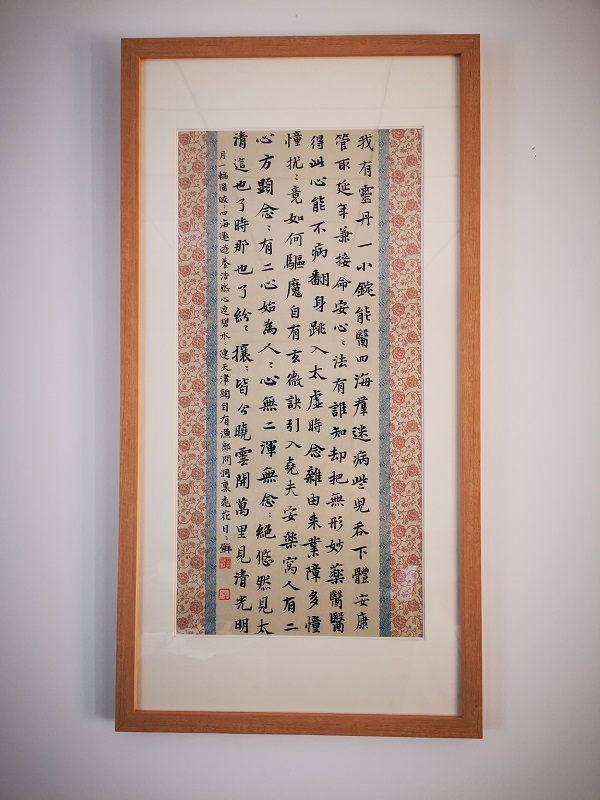 我有靈丹一小錠能醫四海羣迷病些兒吞下體安康
管取延年兼接命安心：法有誰知却把無形妙藥醫醫
得此心能不病翻身跳入太虛時念雜由来業障多憧
憧扰：竟如何驅魔自有玄微訣引入堯夫安樂窩人有二
心方顕念：有二心始為人：心無二渾無念：絕悠然見太
清這也了時那也了紛：攘：皆分曉雲開萬里見清光明
月一輪圓皎：四海遨遊養浩然心連碧水：連天津頭自有漁郎問洞裏桃花日：鮮